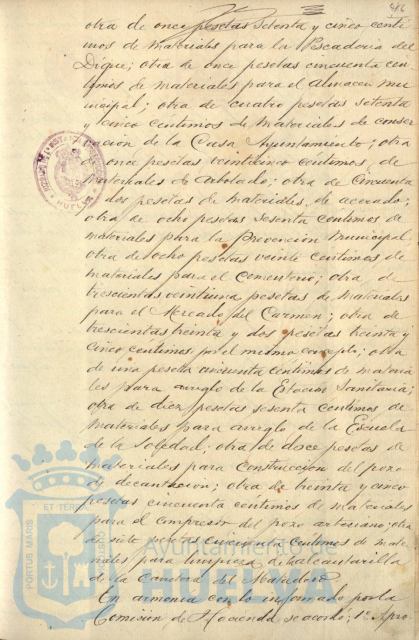 otra de once pesetas setenta y cinco centi
mos de materiales para la Pescaderia del
Dique; otra de once pesetas cincuenta cen
timos de materiales para el Almacen mu
nicipal; otra de cuatro pesetas setenta
y cinco centimos de materiales de conser
vacion de la Casa Ayuntamiento; otra
de once pesetas veinticinco centimos de
materiales de Arbolado; otra de cincuenta
y dos pesetas de materiales de acerado;
otra de ocho pesetas sesenta centimos de
materiales para la Prevencion Municipal
otra de ocho pesetas veinte centimos de
materiales para el Cementerio; otra de
trescientas veintiuna pesetas de materiales
para el Mercado del Carmen; otra de
trescientas treinta y dos pesetas treinta y
cinco centimos por el mismo concepto; otra
de una peseta cincuenta centimos de materia
les para arreglo de la Estacion Sanitaria;
otra de diez pesetas sesenta centimos de
materiales para arreglo de la Escuela
de la Soledad; otra de doce pesetas de
materiales para construccion del pozo
de decantacion; otra de treinta y cinco
pesetas cincuenta centimos de materiales
para el compresor del pozo artesiano; otra
de siete pesetas cincuenta centimos de mate
riales para limpieza de alcantarilla
de la Carretera del Matadero
En armonia con lo informado por la
Comision de Hacienda se acordó; 1º Apro
PORTUS MARIS
ET TERRAE
Ayuntamiento de
HUELVA